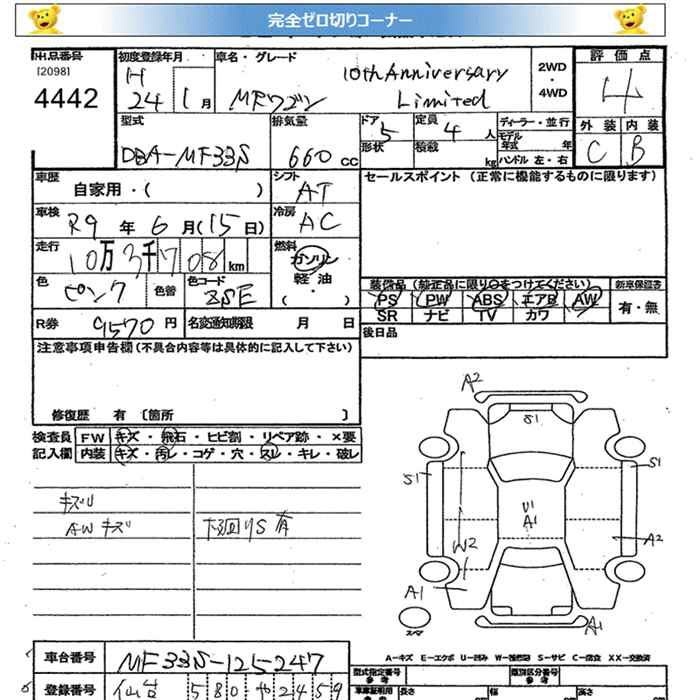 完全ゼロ切りコーナー
出品番号 初度登録年月 車名・グレード 評価点
[2098] H 10th Anniversary 2WD
4442 24 1月 MRワゴン Limited ・4WD 4
型式 排気量 ドア 定員 ディーラー・並行 外装 内装
DBA-MF33S 660cc 5 4人 モデル年式 年 C B
形状 積載 kg ハンドル 左・右
車歴 自家用・( ) シフト AT セールスポイント (正常に機能するものに限ります)
車検 R9年6月(15日) 冷房 AC
走行 10万3千708km 燃料 ガソリン
軽油
・( )
色 ピンク 色替 色コード ZSE 装備品 (純正品に限り○をつけてください) 新車保証書
PS PW ABS エアB AW 有・無
SR ナビ TV カワ
R券 9570円 名変通知期限 月 日 後日品
注意事項申告欄(不具合内容等は具体的に記入して下さい)
修復歴 有 〔箇所 〕
検査員 FW キズ・飛石・ヒビ割・リペア跡・×要
記入欄 内装 キズ・汚レ・コゲ・穴・スレ・キレ・破レ
キズU
AWキズ 下廻りS有
A2
S1
S1 S1
U1
A1
W2 A2
A1
スペア A1
A-キズ E-エクボ U-凹み W-補修跡 S-サビ C-腐食 XX-交換済
車台番号 MF33S-125247
型式指定番号 参考 類別区分番号 参考
登録番号 仙台 580 や 2459
長さ 幅 高さ